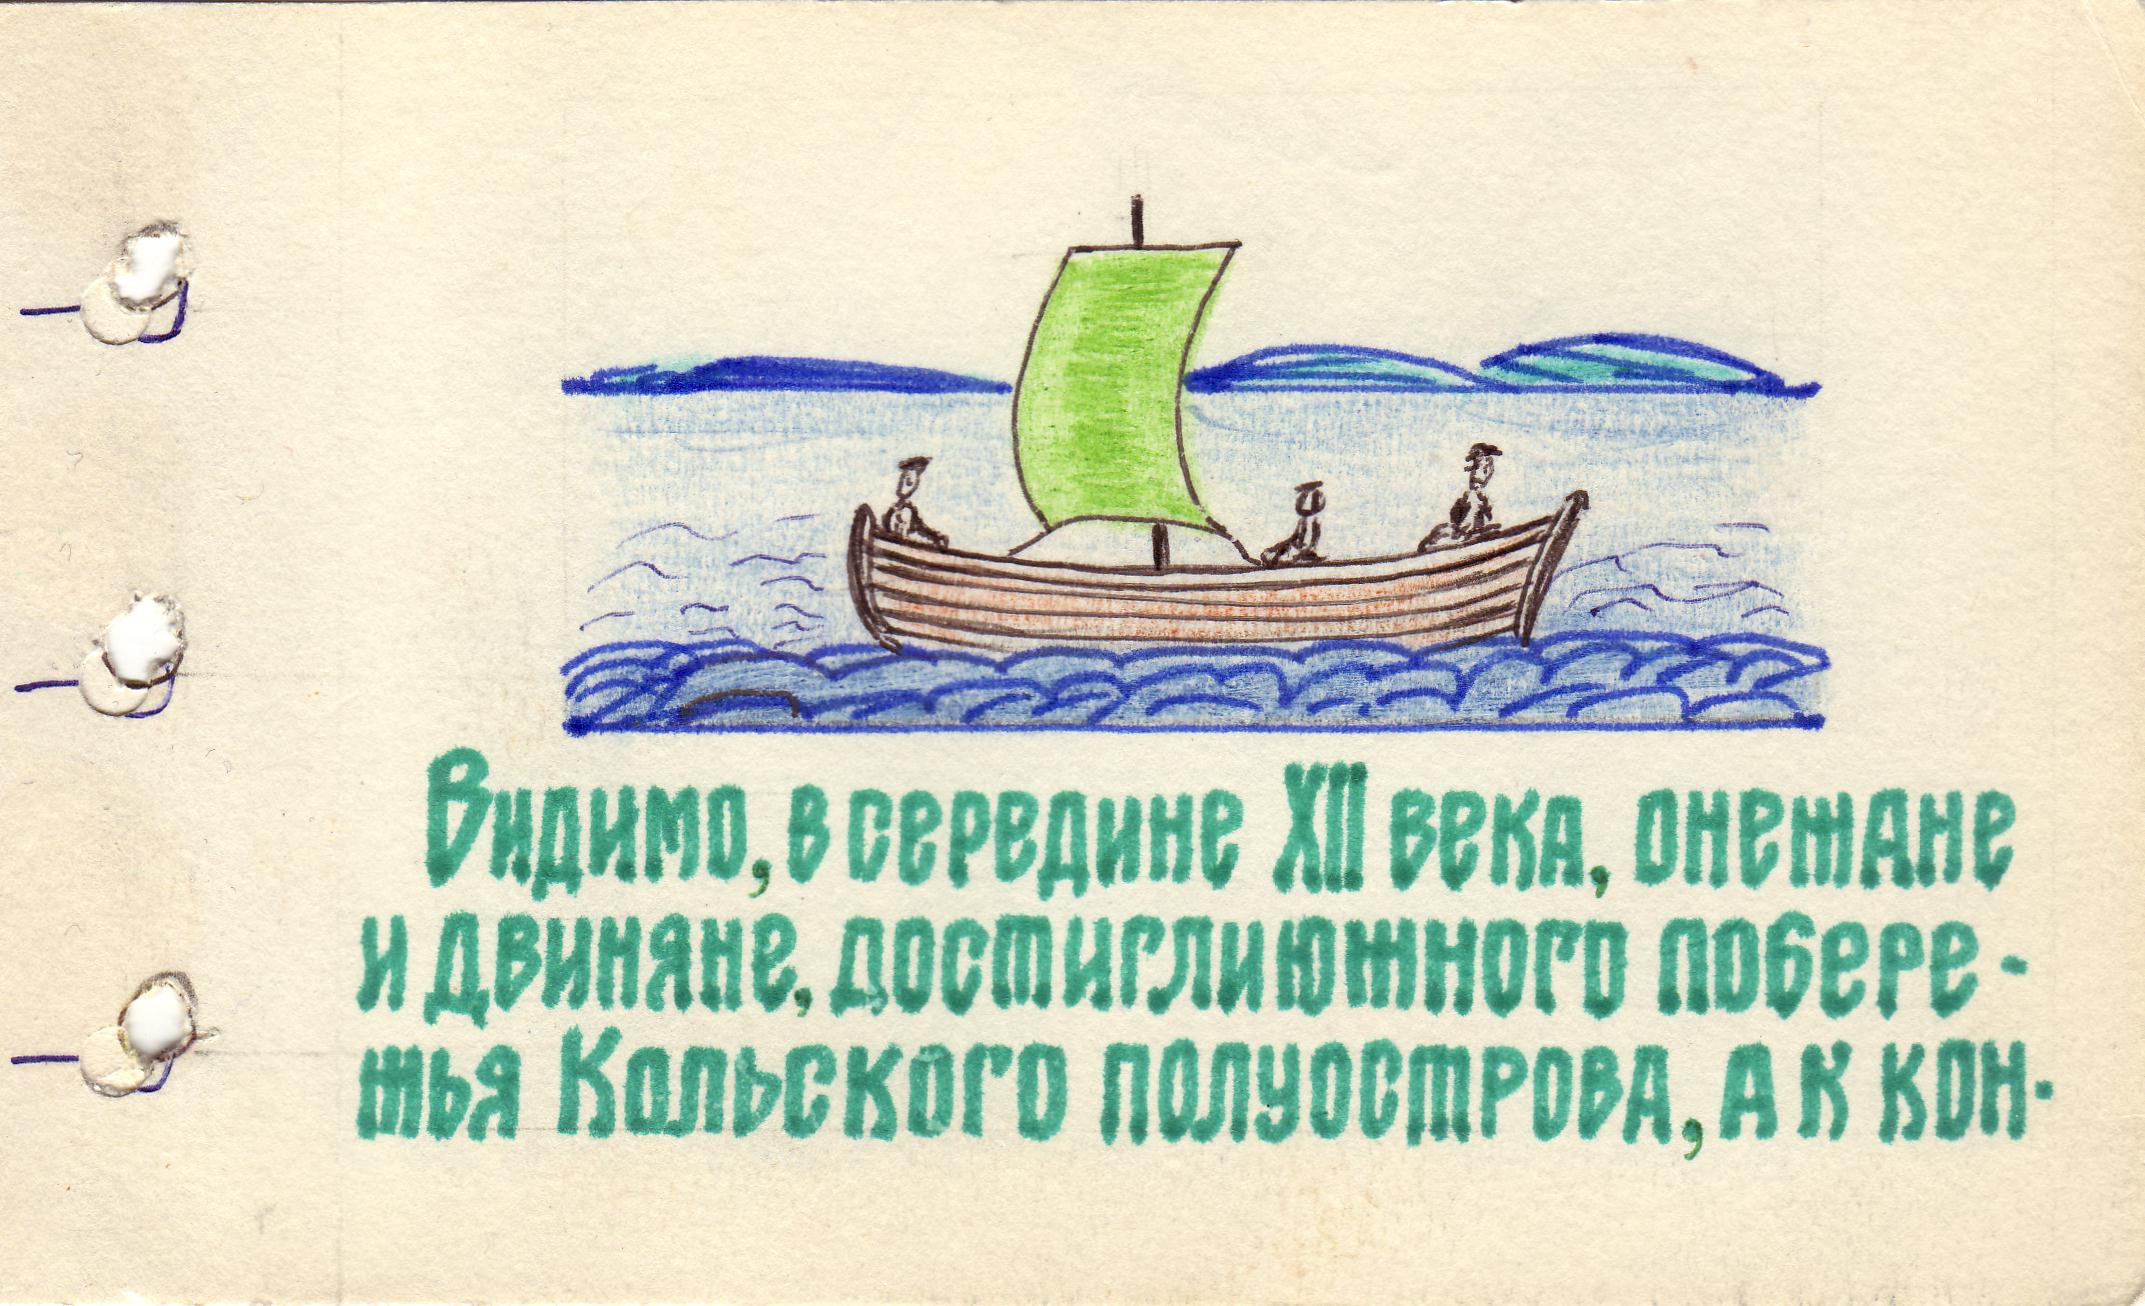 Видимо, в середине XII века, онежане
и двиняне, достигли южного побере-
жья Кольского полуострова, а к кон-